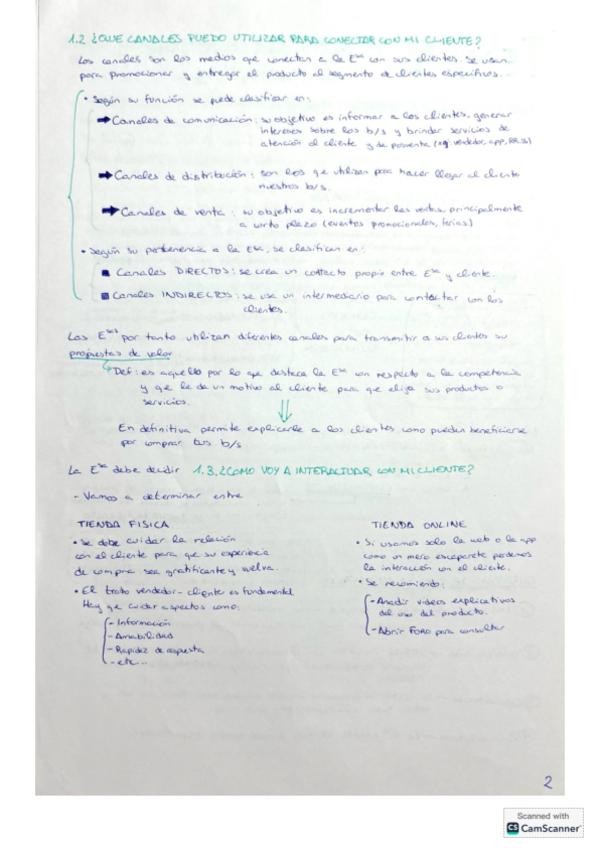 1.2 ¿QUE CANALES PUEDO UTILIZAR PARA CONECTAR CON MI CLIENTE?
Los canales son los medios que conectan a la Esa con sus clientes. Se usan
para promocionar y entregar el producto al segmento de clientes específicos.
• Según su función se puede clasificar en:
➡ Canales de comunicación: su objetivo es informar a los clientes, generar
intereses sobre los b/s y brindar servicios de
atención al cliente y de posventa (ej: vendedor, app, RR.SS)
➡ Canales de distribución: son los que utilizan para hacer llegar al cliente
nuestros b/s.
➡ Canales de venta: su objetivo es incrementar las ventas, principalmente
a corto plazo (eventos promocionales, ferias)
• Según su pertenencia a la Esa, se clasifican en:
■ Canales DIRECTOS: se crea un contacto propio entre Esa y cliente.
■ Canales INDIRECTOS: se use un intermediario para contactar con los
clientes.
Las Esas por tanto utilizan diferentes canales para transmitir a sus clientes su
propuestas de valor
Def: es aquello por lo que destaca la Esa con respecto a la competencia
y que le da un motivo al cliente para que elija sus productos o
servicios.
En definitiva permite explicarle a los clientes como pueden beneficiarse
por comprar tus b/s
La Esa debe decidir 1.3. ¿COMO VOY A INTERACTUAR CON MI CLIENTE?
- Vamos a determinar entre
TIENDA FISICA
• Se debe cuidar la relación
con el cliente para que su experiencia
de compra sea gratificante y vuelva.
• El trato vendedor-cliente es fundamental
Hay que cuidar aspectos como:
- Información
- Amabilidad
- Rapidez de respuesta
- etc...
TIENDA ONLINE
• Si usamos solo la web o la app
como un mero escaparate perdemos
la interacción con el cliente.
• Se recomienda:
- Añadir videos explicativos
del uso del producto.
- Abrir FORO para consultar
2
Scanned with
CS CamScanner